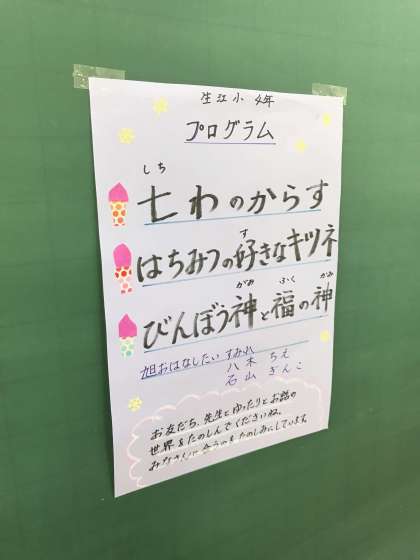 生江小 4年
プログラム
しち
七わのからす
す
はちみつの好きなキツネ
がみ ふく かみ
びんぼう神と福の神
旭おはなしたい すみれ
八木 ちえ
石山 ぎんこ
お友だち、先生とゆったりとお話の
世界をたのしんでくださいね。
みなさんに会うのをたのしみにしています。